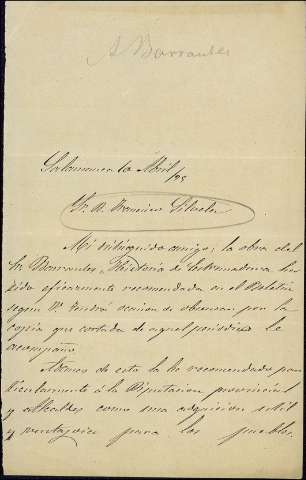 A Barrantes
Salamanca 10 Abril/95
Sr. D. Francisco Silvela
Mi distinguido amigo; la obra del
Sr Barrantes, Historia de Extremadura ha
sido eficazmente recomendada en el Boletín
segun V. tendrá ocasion de observar por la
copia que cortada de aquel periodico le
acompaño.
Además de esto la he recomendado par-
ticularmente á la Diputacion provincial
y Alcaldes como una adquicion util
y ventajosa para los pueblos.